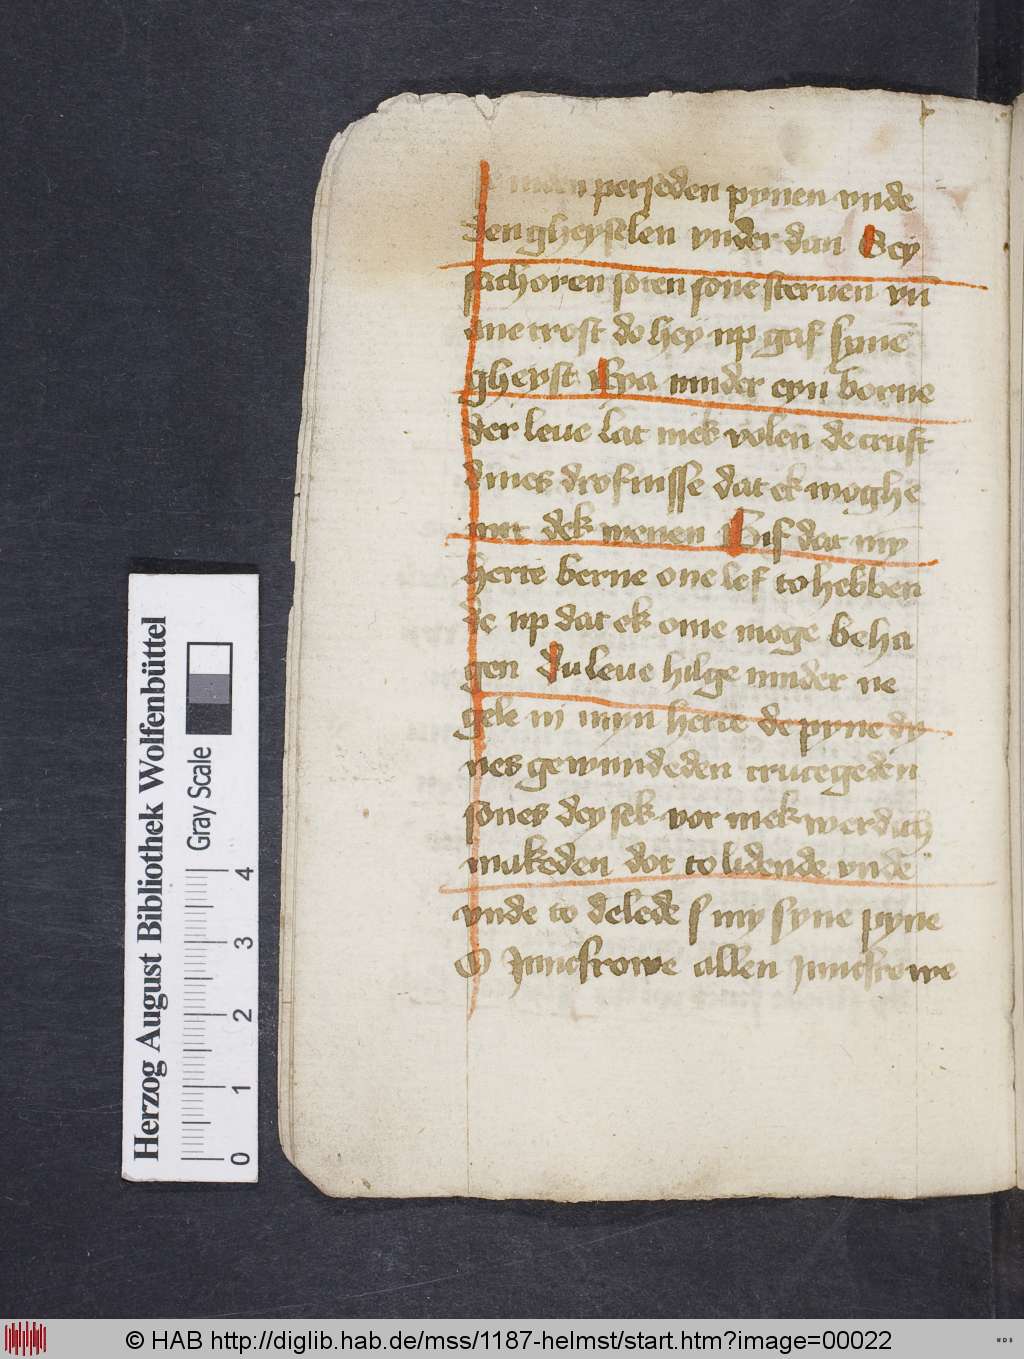 in den perseden pynen vnde
den gheyselen vnder dan Sey
sach oren soten sone steruen vn̄
ane trost do hey up gaf synē
gheyst Eya muder eyn borne
der leue lat mek volen de craft
dines drofnisse dat ek moghe
mit dek wenen Gif dat my̅
herte berne one lef to hebben
de up dat ek ome moge beha
gen du leue hilge muder ne
gele in myn herte de pyne dy
nes gewundeden crucegeden
sones dey sek vor mek werdich
makeden dot to lidende vnde
vnde to delede s my syne pyne
O Juncfrowe allen Juncfrowe
Herzog August Bibliothek Wolfenbüttel
Gray Scale
0 1 2 3 4
© HAB http://diglib.hab.de/mss/1187-helmst/start.htm?image=00022
WDB